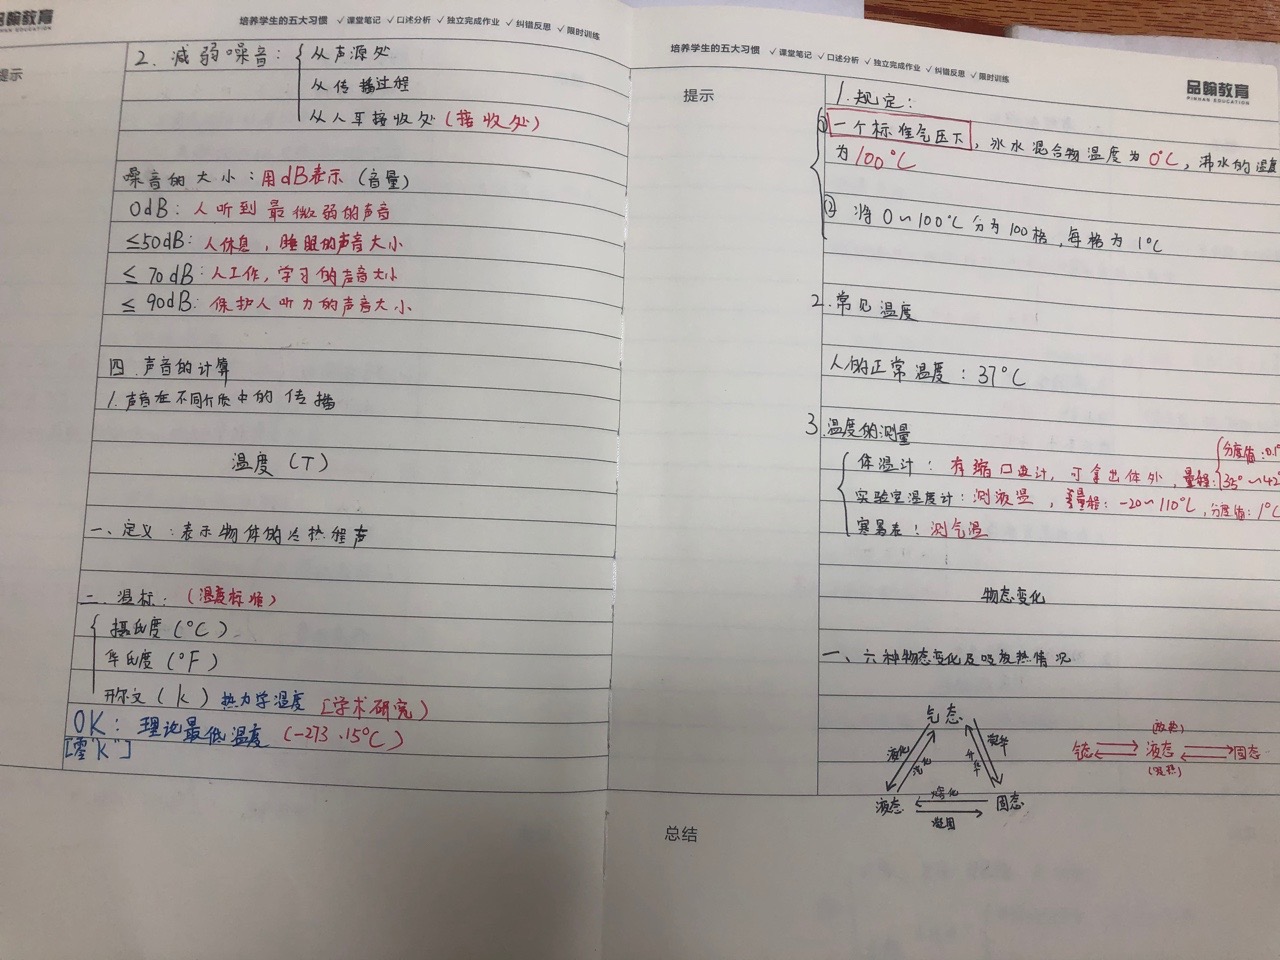 品翰教育
培养学生的五大习惯 ✓课堂笔记 ✓口述分析 ✓独立完成作业 ✓纠错反思 ✓限时训练
提示
2. 减弱噪音: 从声源处
从传播过程
从人耳接收处(接收处)
噪音的大小:用dB表示(音量)
0dB: 人听到最微弱的声音
≤50dB: 人休息,睡眠的声音大小
≤70dB: 人工作,学习的声音大小
≤90dB: 保护人听力的声音大小
四.声音的计算
1.声音在不同介质中的传播
温度(T)
一、定义:表示物体的冷热程度
二.温标:(温度标准)
摄氏度(°C)
华氏度(°F)
开尔文(k)热力学温度[学术研究)
0K: 理论最低温度(-273.15°C)
[零"k"]
培养学生的五大习惯 ✓课堂笔记 ✓口述分析 ✓独立完成作业 ✓纠错反思 ✓限时训练
品翰教育
PINHAN EDUCATION
提示
1.规定:
①一个标准气压下,冰水混合物温度为0°C,沸水的温度
为100°C
②将0~100°C分为100格,每格为1°C
2.常见温度
人的正常温度:37°C
3.温度的测量
体温计:有缩口设计,可拿出体外,量程:35°~42°
分度值:0.1°
实验室温度计:测液温,量程:-20~110°C,分度值:1°C
寒暑表:测气温
物态变化
一、六种物态变化及吸放热情况
气态
液化 汽化 升华 凝华
液态 熔化 固态
凝固
(放热)
气态 液态 固态
(吸热)
总结